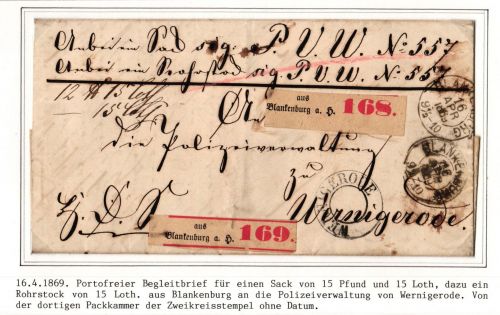 Anbei ein Sack sig. P. V. W. No. 557
Anbei ein Rohrstock sig. P. V. W. No. 557
15 Loth
15 Loth
An
aus
Blankenburg a. H.
168.
die Polizeiverwaltung
zu
Wernigerode.
H. D. S.
aus
Blankenburg a. H.
169.
BLANKENBURG
16
APR
WERNIGERODE
BLANKENBURG
16.4.1869. Portofreier Begleitbrief für einen Sack von 15 Pfund und 15 Loth, dazu ein
Rohrstock von 15 Loth. aus Blankenburg an die Polizeiverwaltung von Wernigerode. Von
der dortigen Packkammer der Zweikreisstempel ohne Datum.